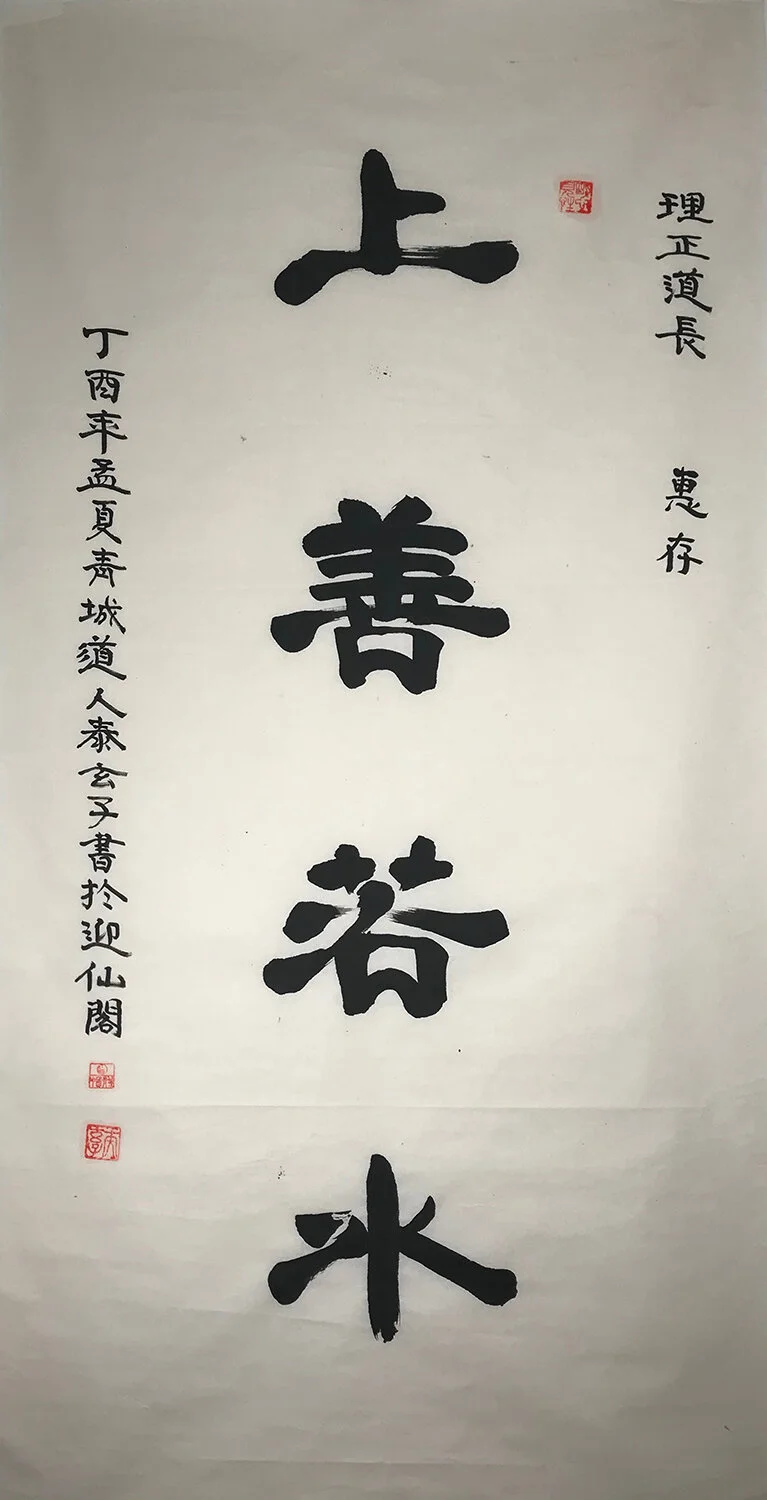 理正道長 惠存
上善若水
丁酉年孟夏青城道人泰玄子書於迎仙閣